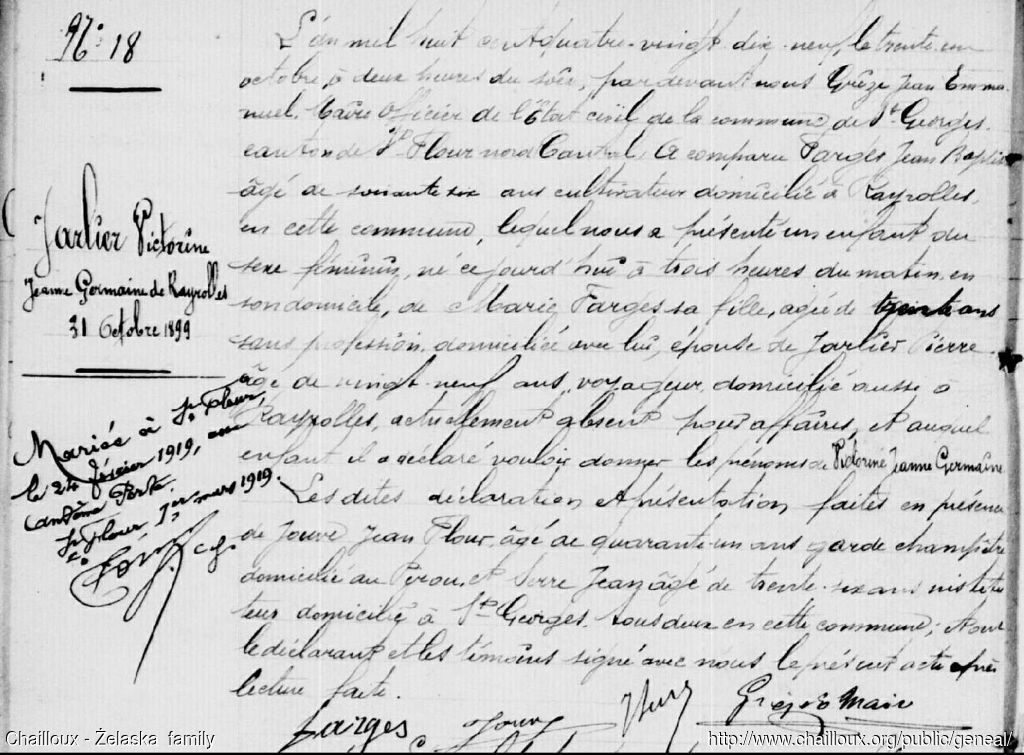 N° 18
Jarlier Victorine
Jeanne Germaine de Rayrolles
31 Octobre 1899
Mariée à St Flour,
le 24 février 1919, avec
Antoine
St Flour 1er mars 1919.
L'an mil huit cent quatre-vingt dix-neuf, le trente un
octobre, à deux heures du soir, par devant nous Grèze Jean Emma-
nuel, Maire Officier de l'Etat civil de la commune de St Georges,
canton de St Flour nord Cantal, A comparu Farges Jean Baptiste
âgé de soixante six ans cultivateur domicilié à Rayrolles,
en cette commune, lequel nous a présenté un enfant du
sexe féminin, né ce jourd'hui à trois heures du matin, en
son domicile, de Marie Farges sa fille, agée de trente ans
sans profession, domiciliée avec lui, épouse de Jarlier Pierre
âgé de vingt-neuf ans, voyageur, domicilié aussi à
Rayrolles, actuellement absent pour affaires, et auquel
enfant il a déclaré vouloir donner les prénoms de Victorine Jeanne Germaine
Les dites déclaration et présentation faites en présence
de Jouve Jean Flour, âgé de quarante-un ans garde champêtre
domicilié au Pirou, et Serre Jean âgé de trente-six ans institu
teur domicilié à St Georges, tous deux en cette commune; et ont
le déclarant et les témoins signé avec nous le présent acte après
lecture faite.
Farges Jouve Grèze Maire
Chailloux - Żelaska family
http://www.chailloux.org/public/geneal/